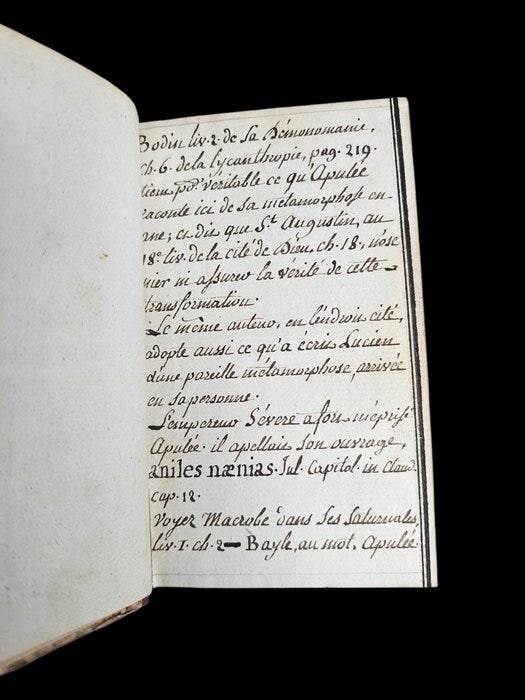 Bodin liv. 2. de sa Démonomanie,
Ch. 6. de la lycanthropie, pag. 219.
tient po.r véritable ce qu'Apulée
raconte ici de sa métamorphose en
âne; et dit que S.t Augustin, au
18.e liv. de la cité de Dieu, ch. 18., n'ose
nier ni assurer la vérité de cette
transformation.
Le même auteur, en l'endroit cité,
adopte aussi ce qu'a écrit Lucien
d'une pareille métamorphose, arrivée
en sa personne.
L'empereur Sévere a fort méprisé
Apulée. il apellait son ouvrage,
aniles nænias. Jul. Capitol. in Claud.
cap. 12.
Voyez Macrobe dans ses saturnales,
liv. 1. ch. 2 — Bayle, au mot, Apulée.